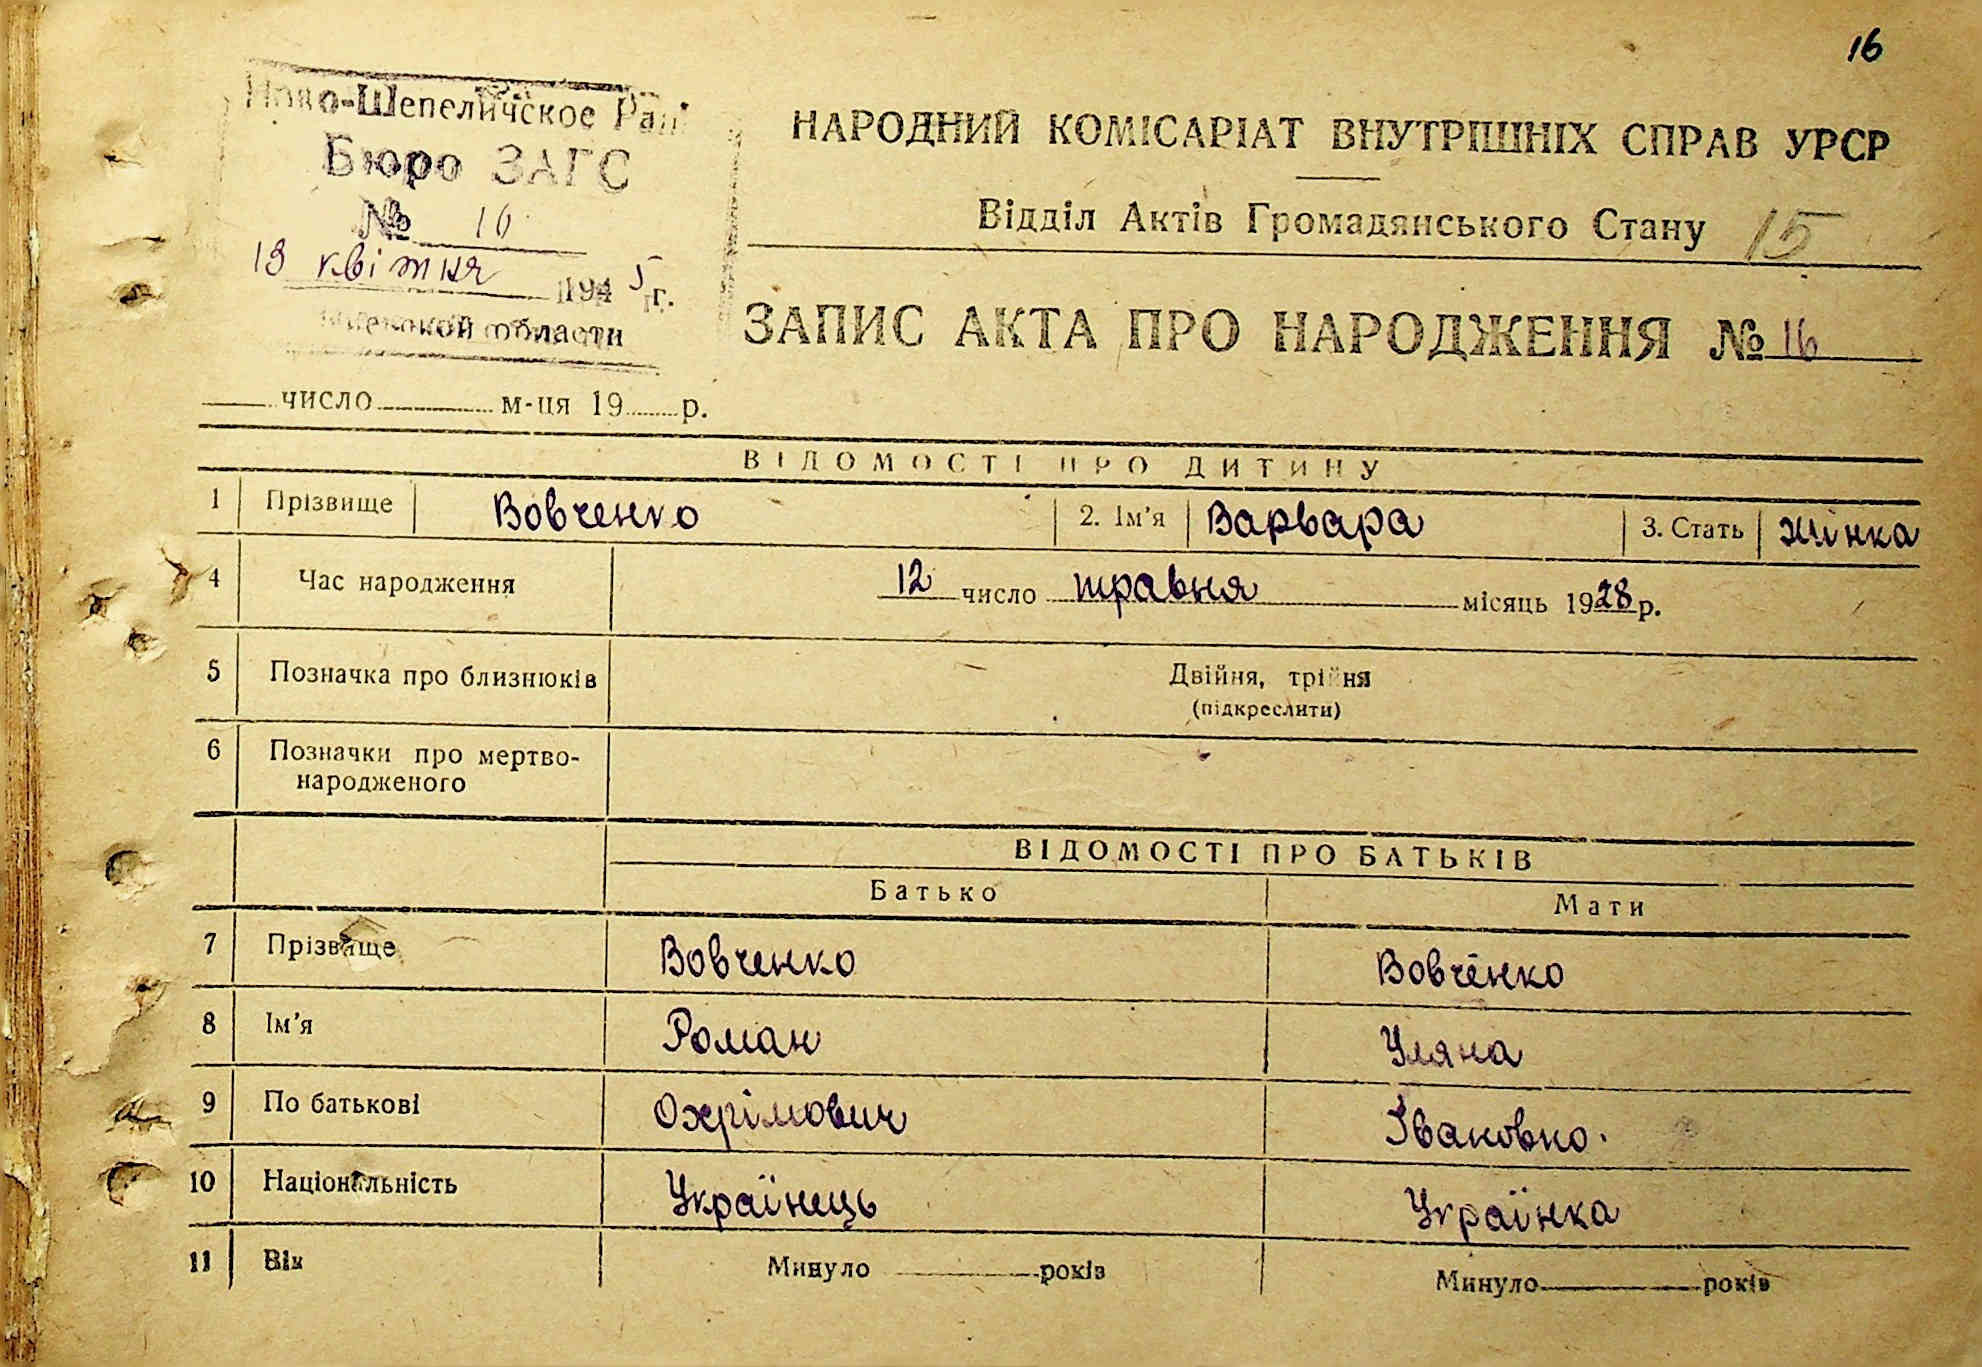 16
Ново-Шепеличское Рай
Бюро ЗАГС
№ 16
13 квітня 1945 г.
области
НАРОДНИЙ КОМІСАРІАТ ВНУТРІШНІХ СПРАВ УРСР
Відділ Актів Громадянського Стану 15
ЗАПИС АКТА ПРО НАРОДЖЕННЯ № 16
число м-ця 19 р.
ВІДОМОСТІ ПРО ДИТИНУ
1 Прізвище Вовченко 2. Ім'я Варвара 3. Стать жінка
4 Час народження 12 число травня місяць 1928 р.
5 Позначка про близнюків Двійня, трійня
(підкреслити)
6 Позначки про мертво-
народженого
ВІДОМОСТІ ПРО БАТЬКІВ
Батько Мати
7 Прізвище Вовченко Вовченко
8 Ім'я Роман Уляна
9 По батькові Охрімович Івановно.
10 Національність Українець Українка
11 Вік Минуло років Минуло років